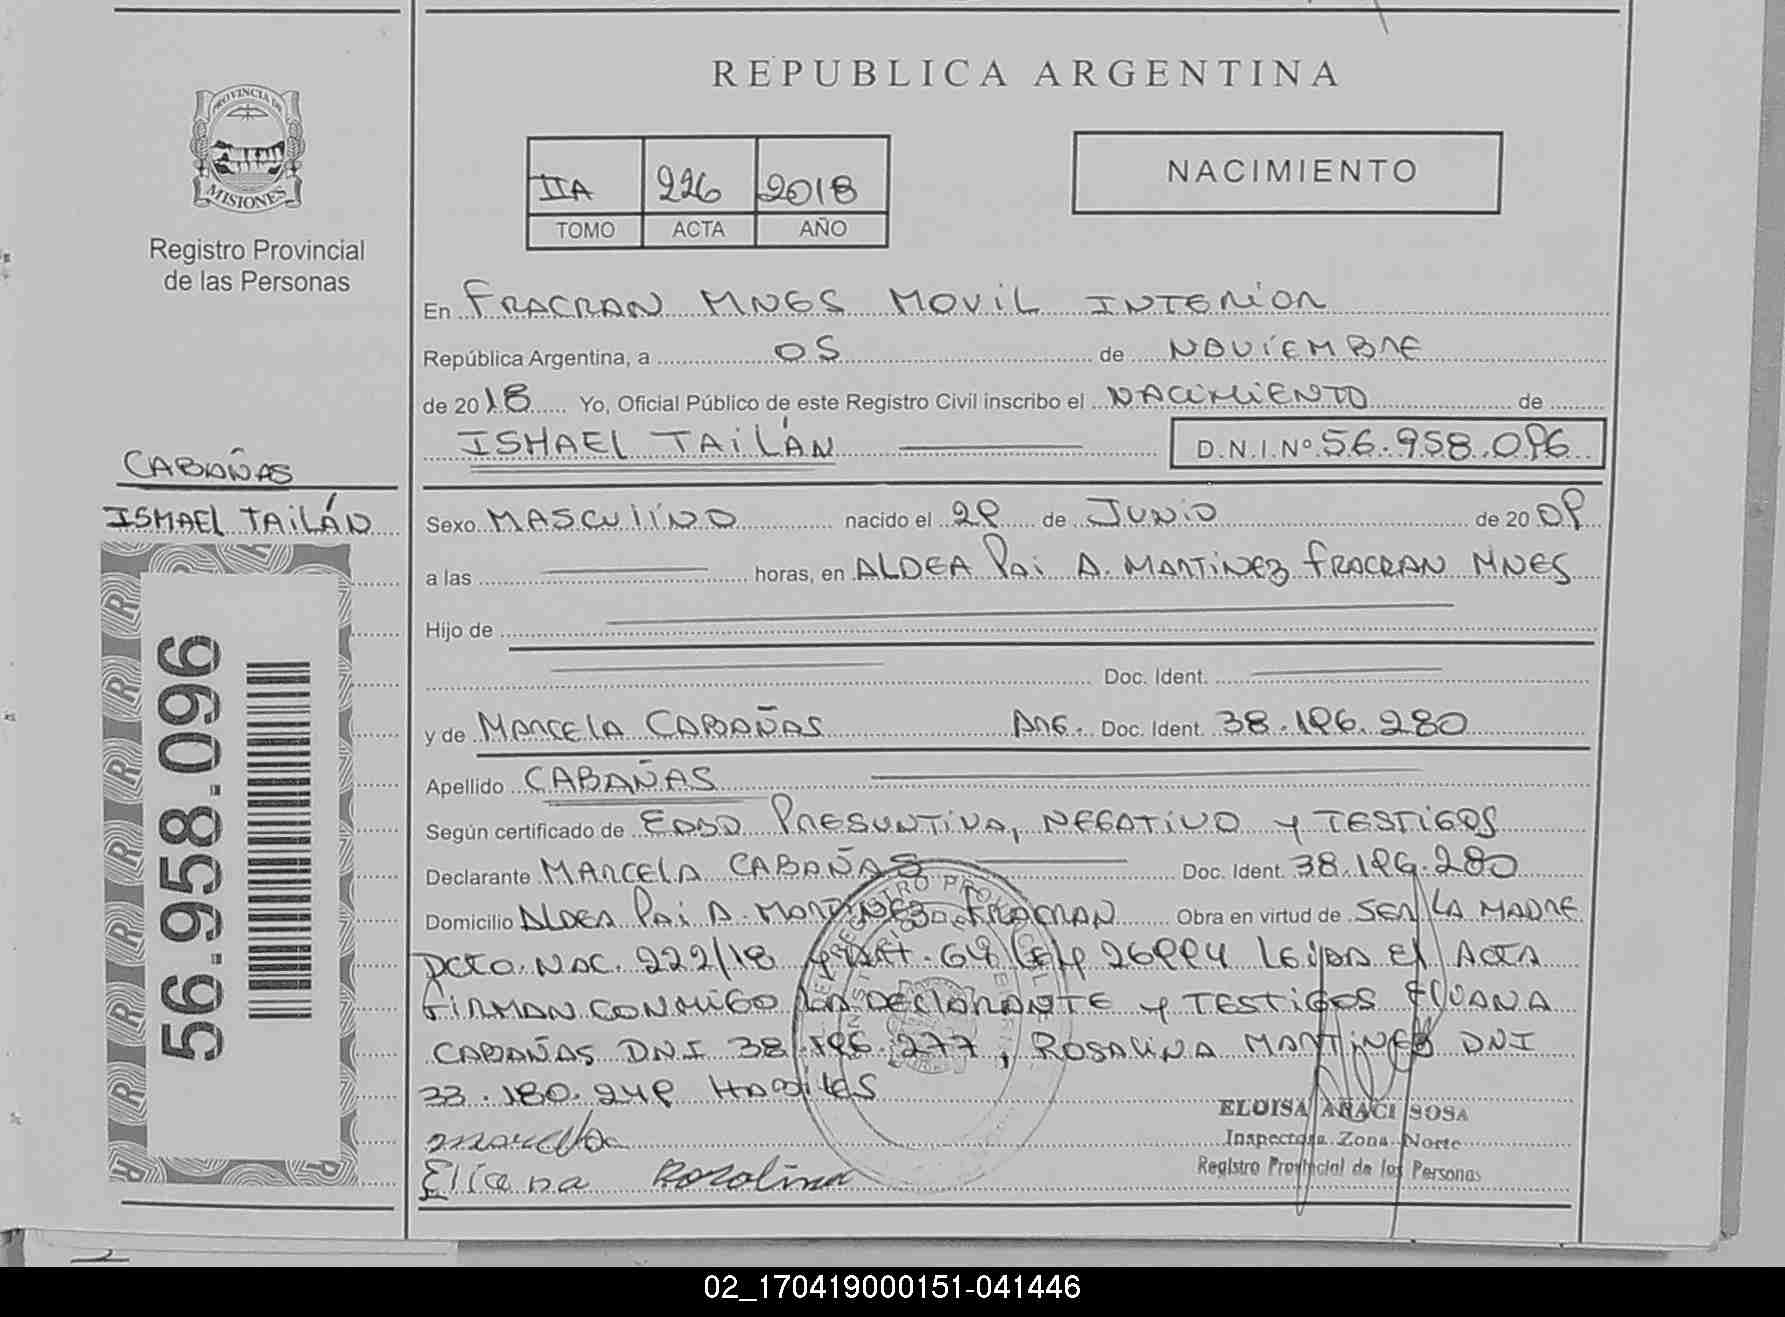 REPUBLICA ARGENTINA
PROVINCIA DE
MISIONES
Registro Provincial
de las Personas
IIA 226 2018
TOMO ACTA AÑO
NACIMIENTO
En FRACRAN MNES MOVIL INTERIOR
República Argentina, a 05 de NOVIEMBRE
de 2018 Yo, Oficial Público de este Registro Civil inscribo el NACIMIENTO de
ISMAEL TAILÁN D.N.I.Nº 56.958.096
CABAÑAS
ISMAEL TAILÁN
56.958.096
Sexo MASCULINO nacido el 29 de JUNIO de 2009
a las horas, en ALDEA PAI A. MARTINEZ FRACRAN MNES
Hijo de
Doc. Ident.
y de MARCELA CABAÑAS ARG. Doc. Ident. 38.196.280
Apellido CABAÑAS
Según certificado de EDAD PRESUNTIVA, NEGATIVO y TESTIGOS
Declarante MARCELA CABAÑAS Doc. Ident. 38.196.280
Domicilio ALDEA PAI A. MARTINEZ FRACRAN Obra en virtud de SER LA MADRE
DCTO. NAC. 222/18 y ART. 69 LEY 26994 LEIDA EL ACTA
FIRMAN CONMIGO LA DECLARANTE y TESTIGOS
CABAÑAS DNI 38.196.277, ROSALINA MARTINEZ DNI
33.180.249 HABILES
marcela
Eliana Rosalina
ELOISA ARACI SOSA
Inspectora Zona Norte
Registro Provincial de las Personas
02_170419000151-041446